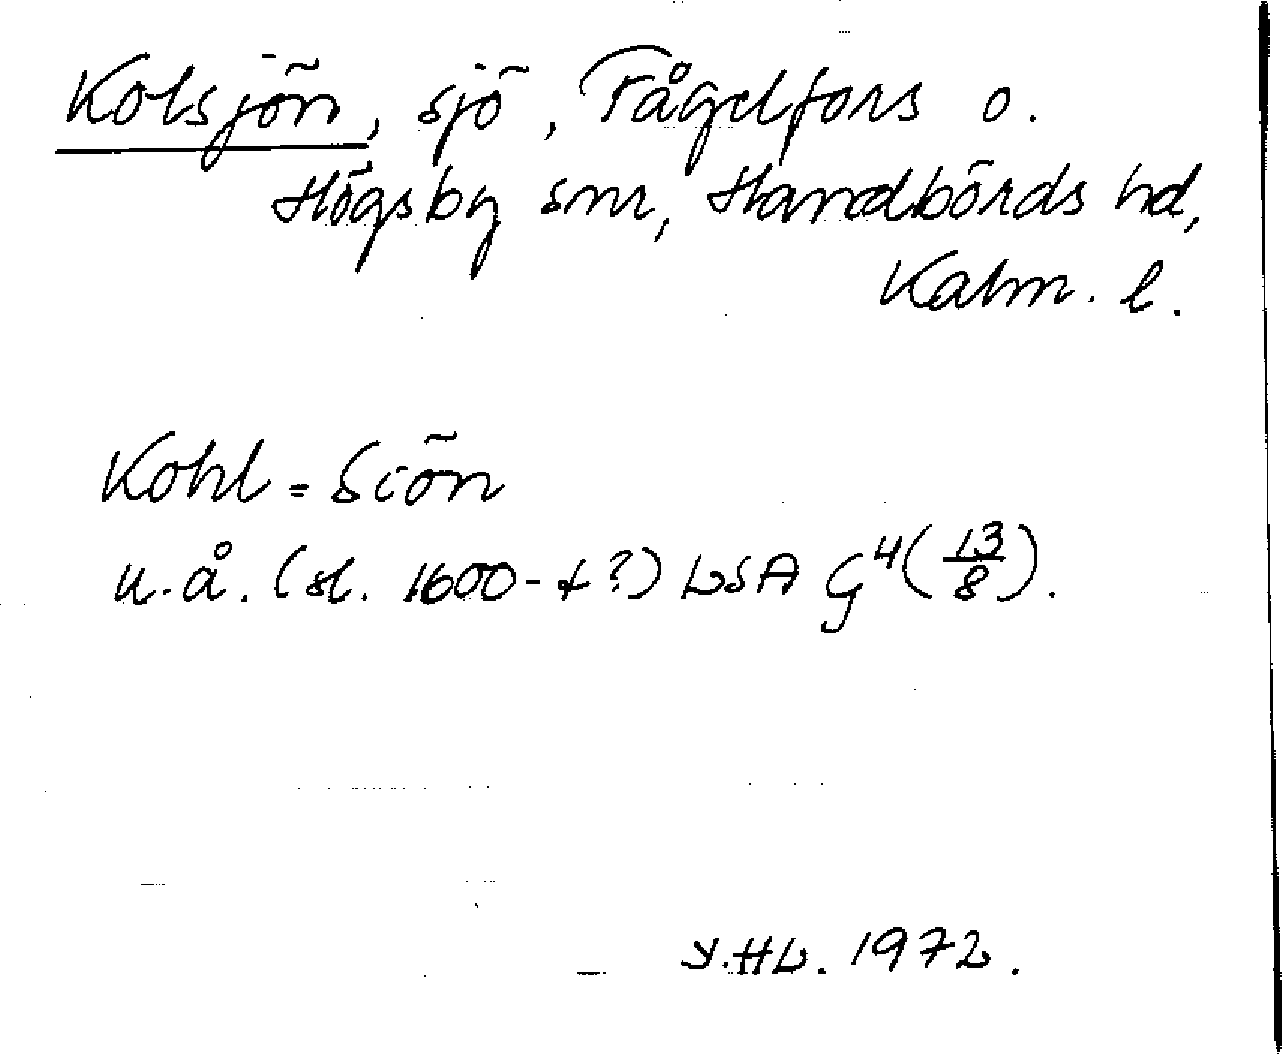 Kolsjön, sjö, Fågelfors o.
Högsby snr, Handbörds hd,
Kalm. l.
Kohl=Siön
u.å. (sl. 1600-t?) LSA G4(13/8).
Y.HL. 1972.